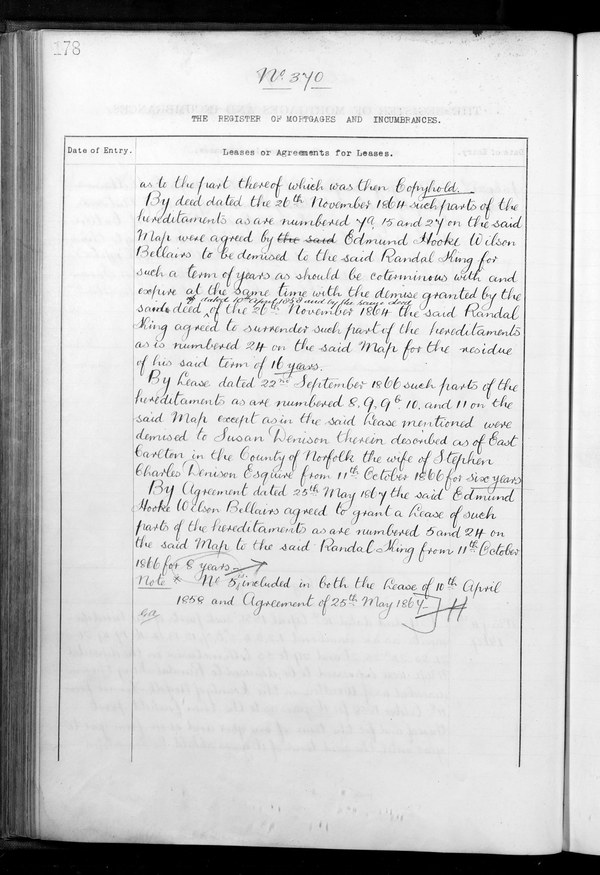 178
No. 370
THE REGISTER OF MORTGAGES AND INCUMBRANCES.
Date of Entry.
Leases or Agreements for Leases.
as to the part thereof which was then Copyhold.
By deed dated the 26th November 1864 such parts of the
hereditaments as are numbered 7a, 15 and 27 on the said
Map were agreed by the said Edmund Hooke Wilson
Bellairs to be demised to the said Randal King for
such a term of years as should be coterminous with and
expire at the same time with the demise granted by the
dated 10th April 1858 and by the same deed
said deed of the 26th November 1864 the said Randal
King agreed to surrender such part of the hereditaments
as is numbered 24 on the said Map for the residue
of his said term of 16 years.
By Lease dated 22nd September 1866 such parts of the
hereditaments as are numbered 8, 9, 9b, 10, and 11 on the
said Map except as in the said Lease mentioned were
demised to Susan Denison therein described as of East
Carlton in the County of Norfolk the wife of Stephen
Charles Denison Esquire from 11th October 1866 for six years
By Agreement dated 25th May 1867 the said Edmund
Hooke Wilson Bellairs agreed to grant a Lease of such
parts of the hereditaments as are numbered 5 and 24 on
the said Map to the said Randal King from 11th October
1866 for 8 years
Note x No "5" included in both the Lease of 10th April
1858 and Agreement of 25th May 1867